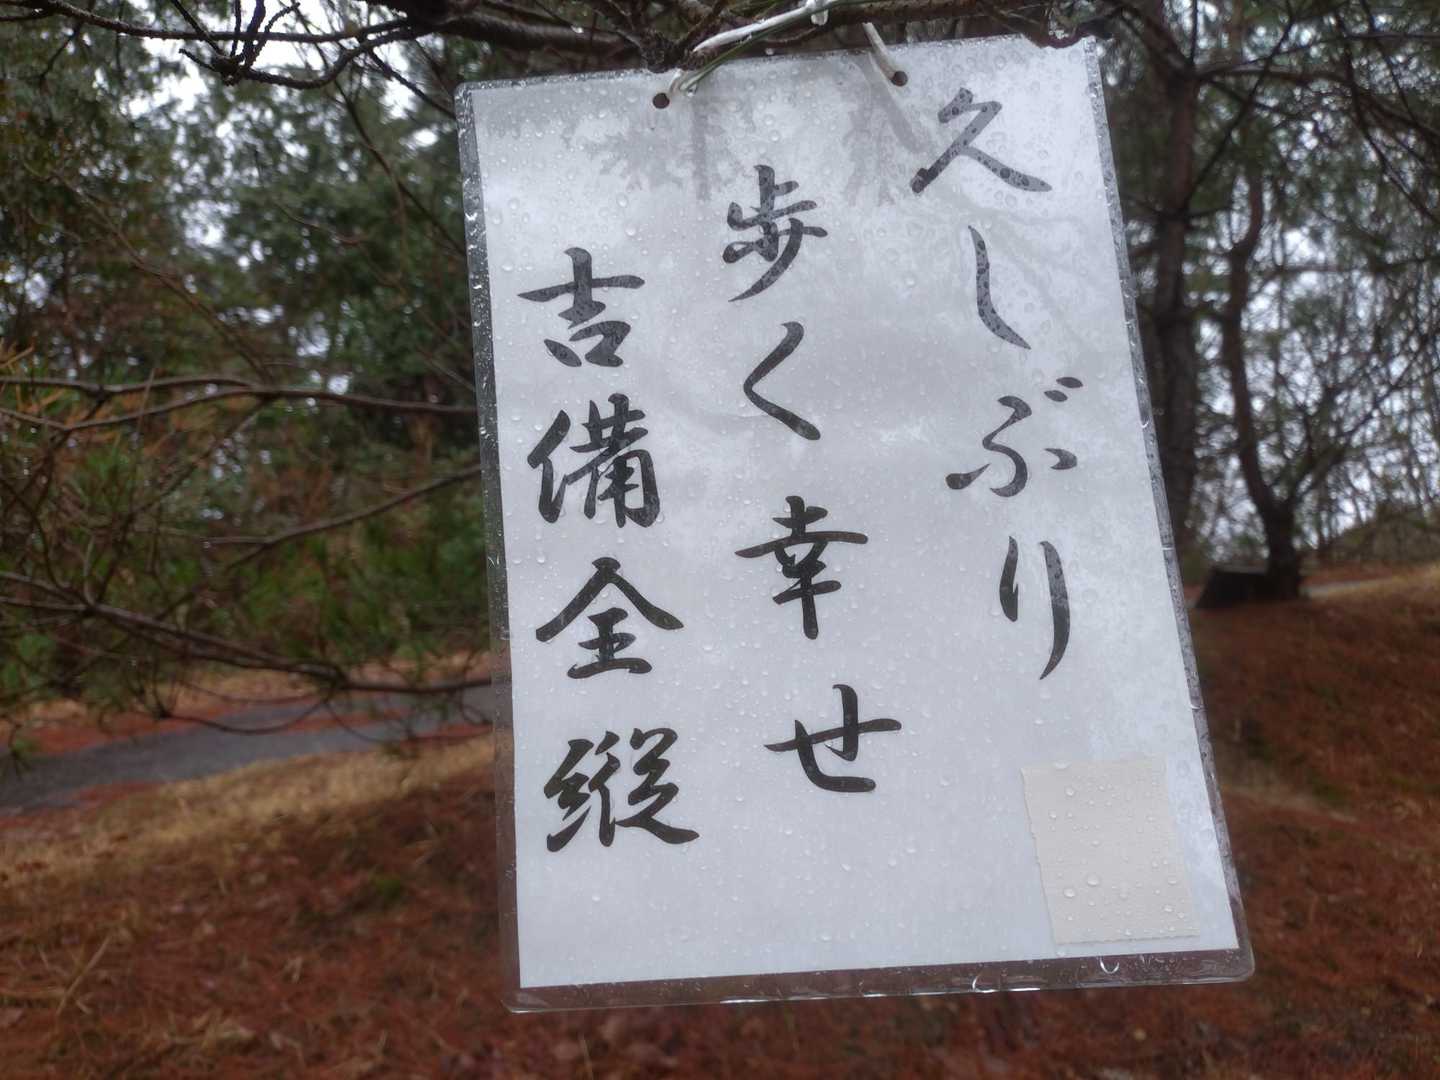 久しぶり
歩く幸せ
吉備全縦